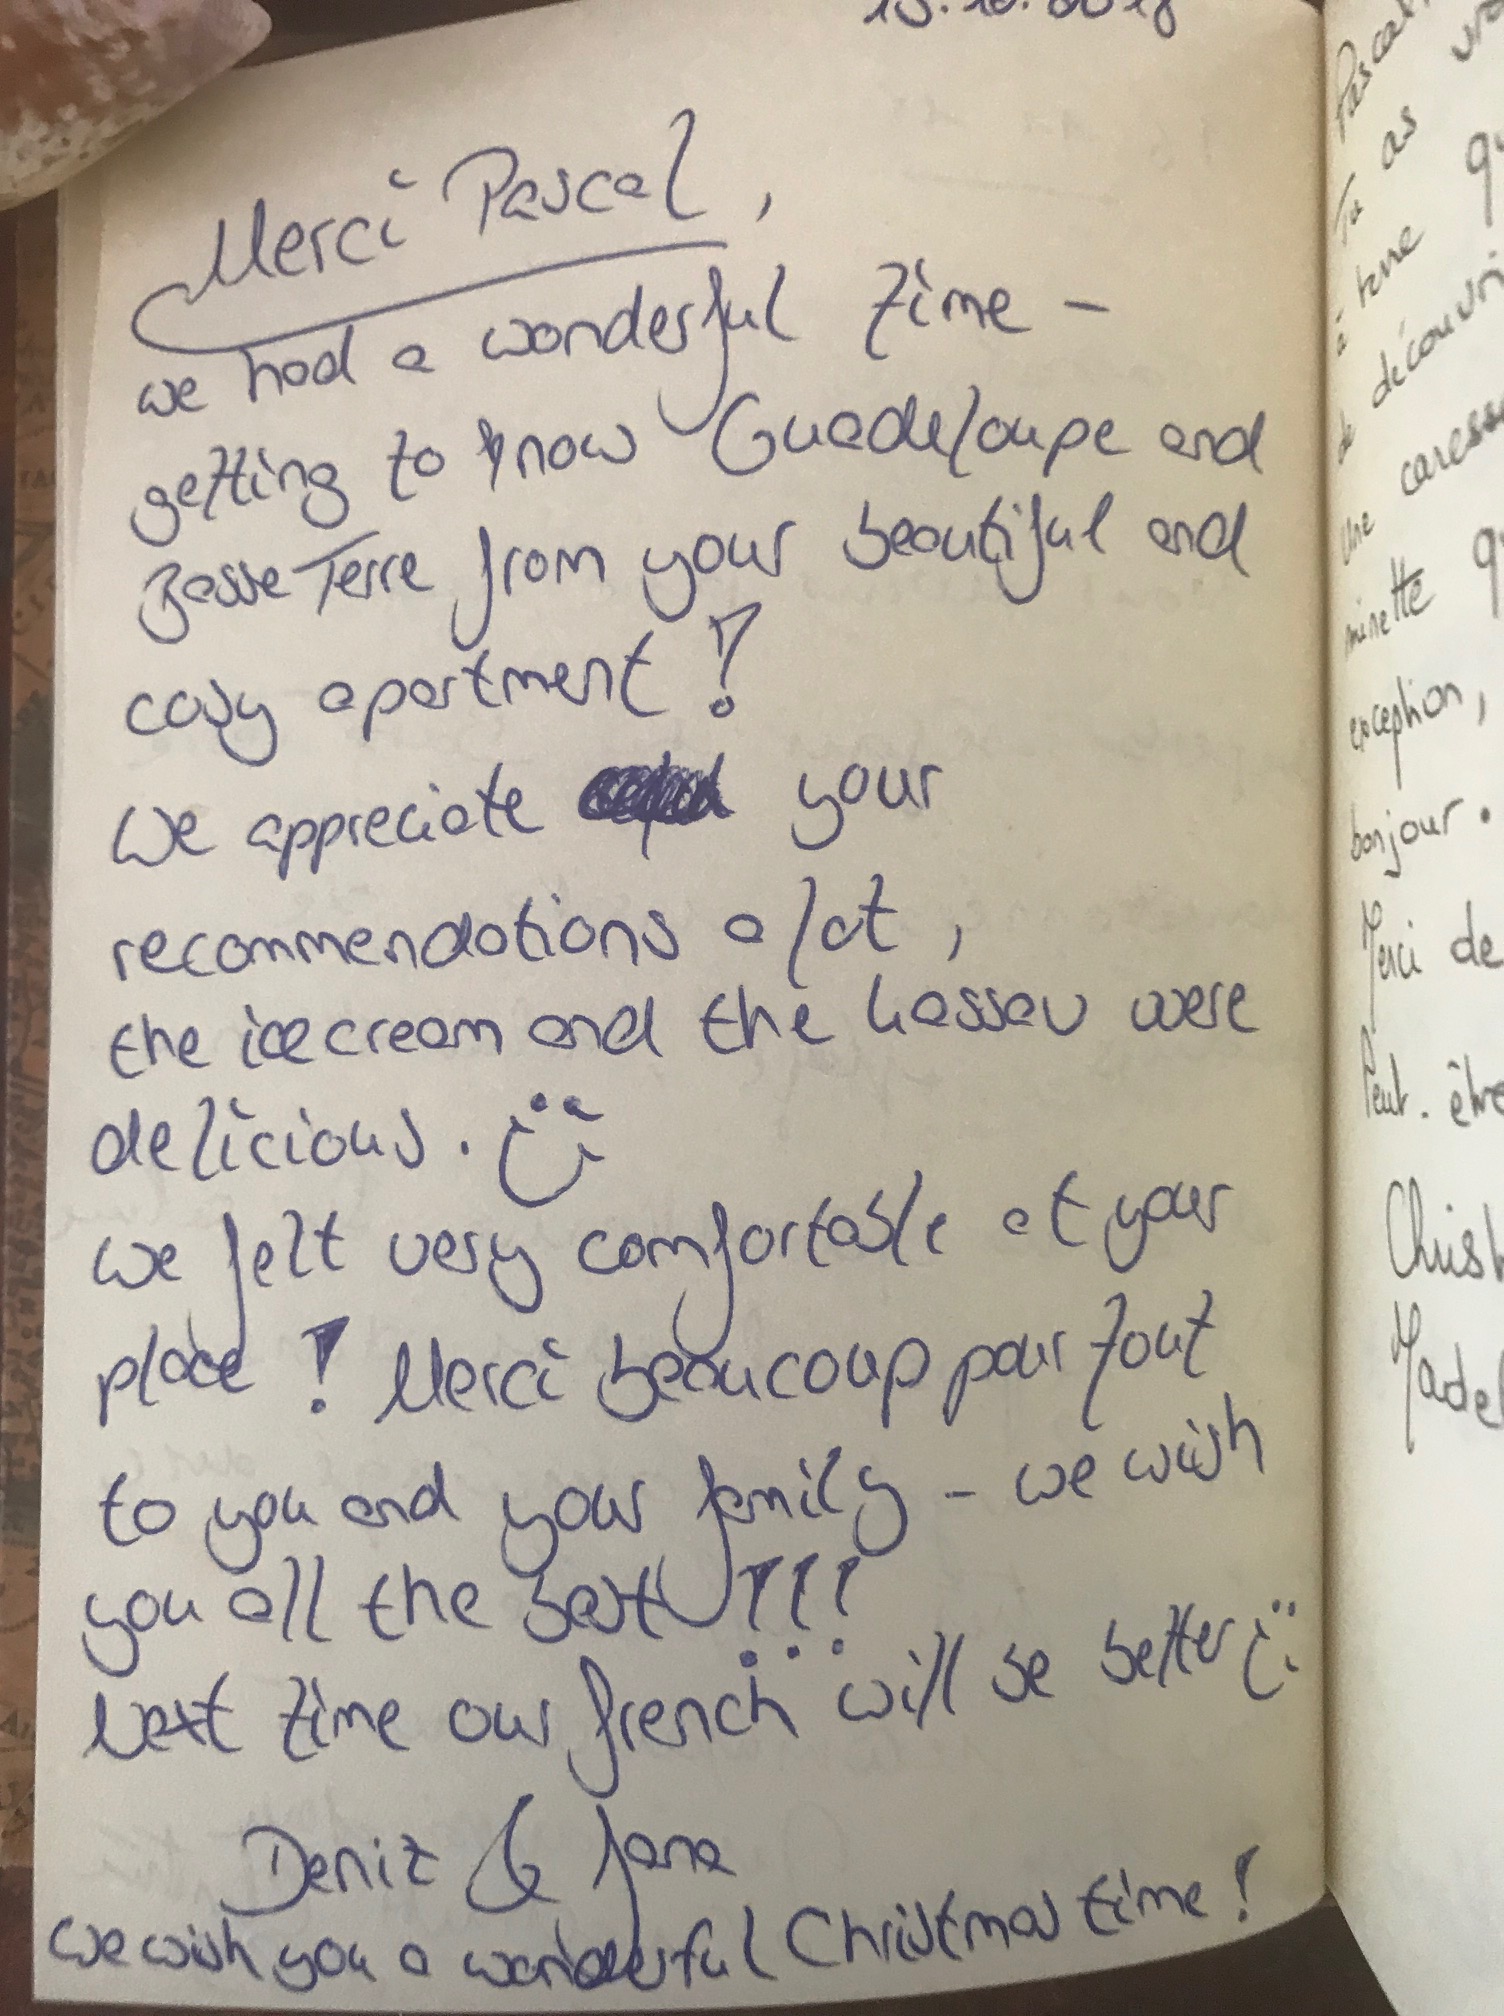 Merci Pascal,
we had a wonderful time -
getting to know Guadeloupe and
Basse Terre from your beautiful and
cosy apartment!
We appreciate your
recommendations a lot,
the icecream and the Lassav were
delicious. :)
we felt very comfortable at your
place! Merci beaucoup pour tout
to you and your family - we wish
you all the best!!!
Next time our french will be better :)
Deniz & Jana
we wish you a wonderful Christmas time!
Tu as
à tene
de découvri
Une caress
minette
exception,
bonjour.
Merci de
Peut-être